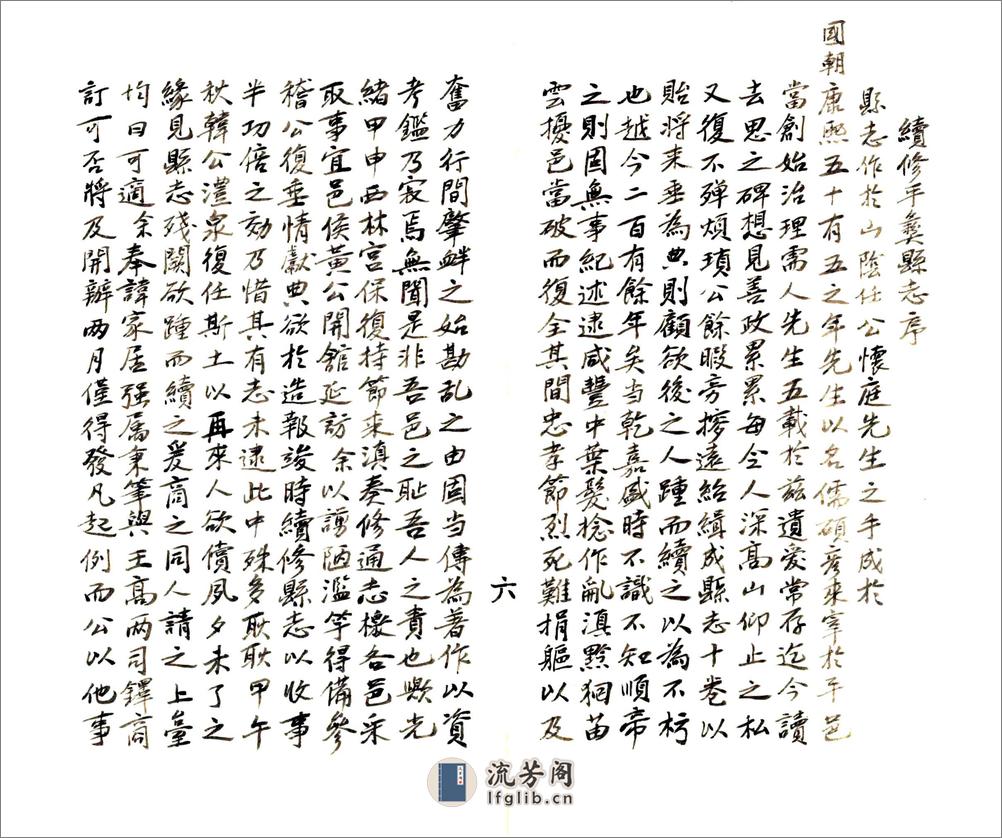 續修平彝縣志序
縣志作於山陰任公懷庭先生之手成於
國朝康熙五十有五之年先生以名儒碩彥來宰於平邑
當創始治理需人先生五載於茲遺愛常存迄今讀
去思之碑想見善政累累每令人深高山仰止之私
又復不殫煩瑣公餘暇旁搜遠紹緝成縣志十卷以
貽將來垂為典則顧欲後之人踵而續之以為不朽
也越今二百有餘年矣当乾嘉盛時不識不知順帝
之則固無事紀述逮咸豐中葉髮捻作亂滇黔狪苗
雲擾邑當破而復全其間忠孝節烈死難捐軀以及
奮力行間肇衅之始勘乱之由固当傳為著作以資
考鑑乃寂焉無聞是非吾邑之耻吾人之責也歟光
緒甲申西林宮保復持節來滇奏修通志檄各邑采
取事宜邑侯黃公開館延訪余以謭陋濫竽得備參
稽公復垂情獻典欲於造報竣時續修縣志以收事
半功倍之効乃惜其有志未逮此中殊多耿耿甲午
秋韓公澧泉復任斯土以再來人欲償夙夕未了之
緣見縣志残闕欲踵而續之爰商之同人請之上臺
均曰可適余奉諱家居强属秉筆與王高两司鐸商
訂可否將及開辦两月僅得發凡起例而公以他事
六
流芳阁
lfglib.cn